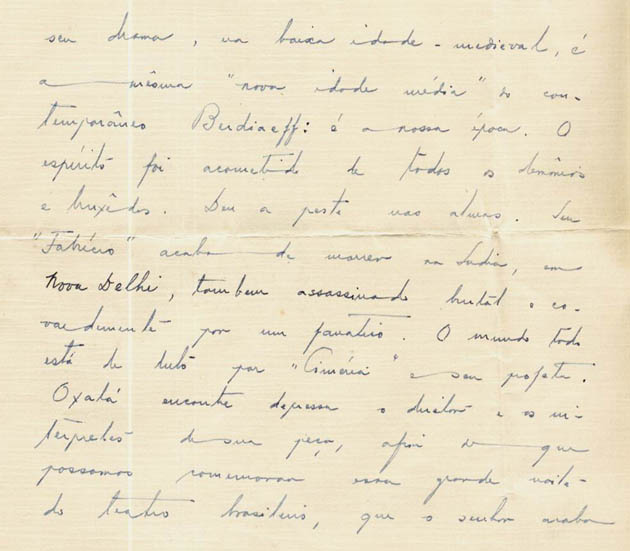 seu drama, na baixa idade-medieval, é
a mesma "nova idade média" do con-
temporâneo Berdiaeff: é a nossa época. O
espírito foi acometido de todos os demônios
e bruxêdos. Deu a peste nas almas. Seu
"Fabrício" acaba de morrer na India, em
Nova Delhi, tambem assassinado brutal e co-
vardemente por um fanatico. O mundo todo
está de luto por "Ciméria" e seu profeta.
Oxalá encontre depressa o diretor e os in-
térpretes de sua peça, afim de que
possamos comemorar essa grande noite
do teatro brasileiro, que o senhor acaba